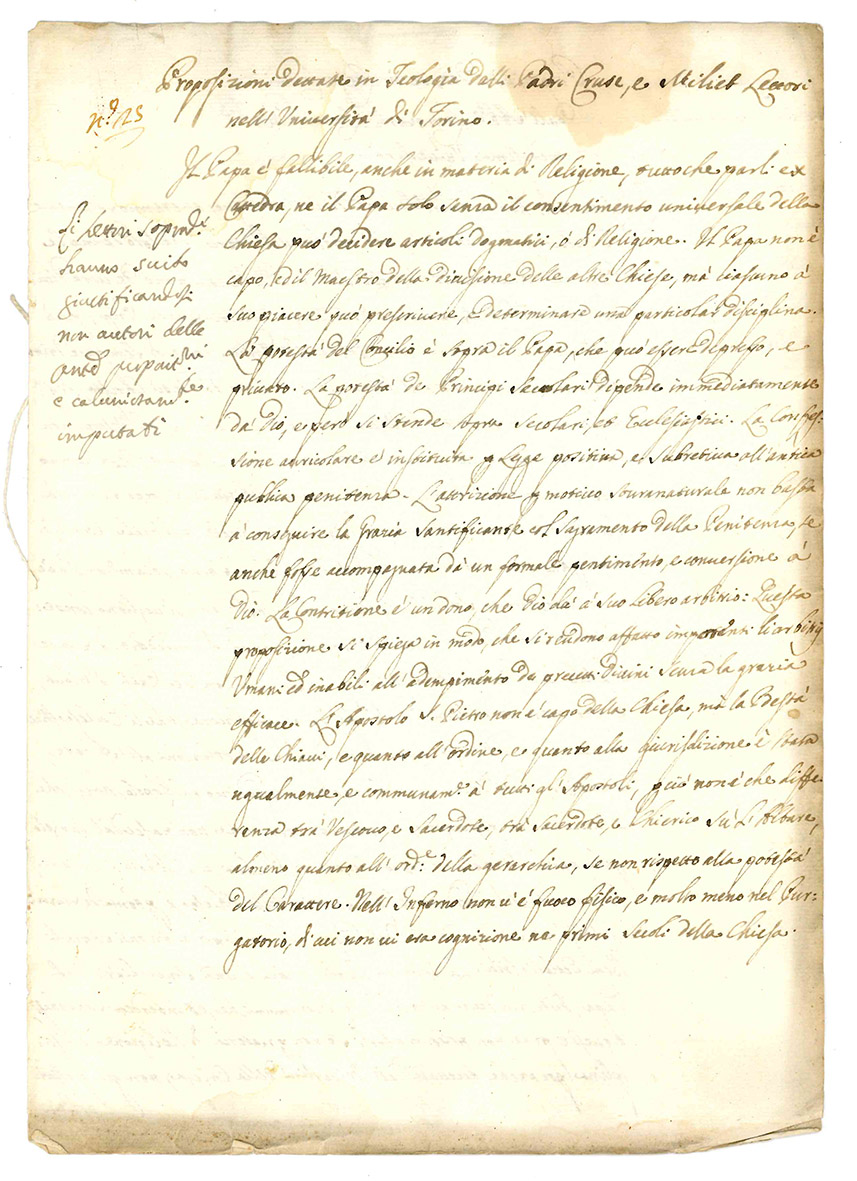 Proposizioni dettate in Teologia dalli Padri Cruse, e Miliet Lettori
nell' Università di Torino.
N.º 25
Il Papa è fallibile, anche in materia di Religione, tuttoche parli ex
Cattedra, ne il Papa solo senza il consentimento universale della
Chiesa può decidere articoli dogmatici, ó di Religione. Il Papa non è
capo, ed il Maestro della divisione delle altre Chiese, mà ciascuno á
suo piacere può prescrivere, e determinare una particolar disciplina.
La potestà del Concilio è sopra il Papa, che può essere depreso, e
privato. La potestà de Principi Secolari dipende immediatamente
dà Dio, e però si stende sopra Secolari, et Ecclesiastici. La Confes-
sione auricolare è instituita p Legge positiva, e subretiva all'antica
publica penitenza. L'attrizione p motivo souranaturale non basta
á conseguire la Grazia Santificante col Sagramento della Penitenza, se
anche fosse accompagnata dà un formale pentimento, e conversione à
Dio. La Contritione è un dono, che Dio dà á suo Libero arbitrio: Questa
proposizione si spiega in modo, che si rendono affatto impotenti li arbitrij
Umani ed inabili all' adempimento de precetti Divini senza la grazia
efficace. L'Apostolo S. Pietro non è capo della Chiesa, mà la Podestà
delle Chiavi, e quanto all' ordine, e quanto alla giurisdizione è stata
ugualmente, e communam.e à tutti gl' Apostoli, p cui non è che diffe-
renza trà Vescovo, e Sacerdote, trà Sacerdote, e Chierico sù L'Altare,
almeno quanto all' ord.e della gerarchia, se non rispetto alla potestà
del Carattere. Nell' Inferno non v'è fuoco fisico, e molto meno nel Pur-
gatorio, di cui non vi era cognizione ne primi Secoli della Chiesa.
Li lettori sopred.i
hanno subito
giustificandosi
non autori delle
anted.e proposit.ni
e caluniosam.te
imputati